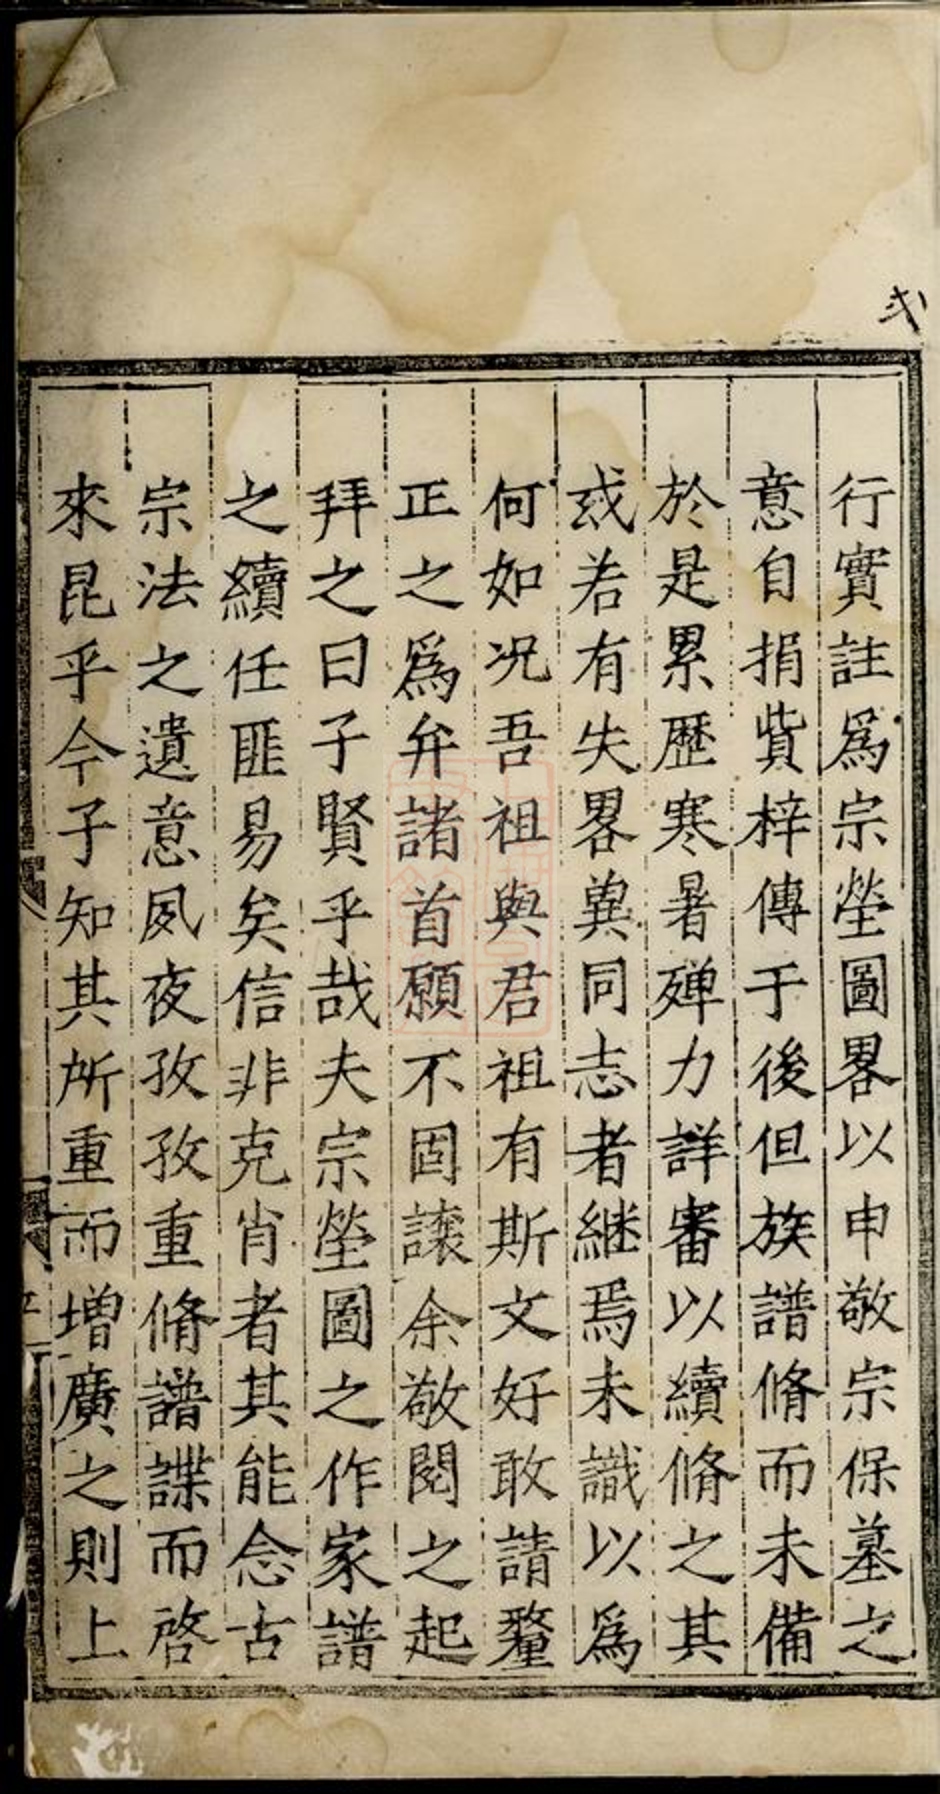 行實註爲宗塋圖畧以申敬宗保墓之
意自捐貲梓傳于後但族譜脩而未備
於是累歷寒暑殫力詳審以續脩之其
或若有失畧兾同志者継焉未識以爲
何如况吾祖與君祖有斯文好敢請釐
正之爲弁諸首願不固譲余敬閱之起
拜之曰子賢乎哉夫宗塋圖之作家譜
之續任匪易矣信非克肖者其能念古
宗法之遺意夙夜孜孜重脩譜諜而啓
來昆乎今子知其所重而增廣之則上